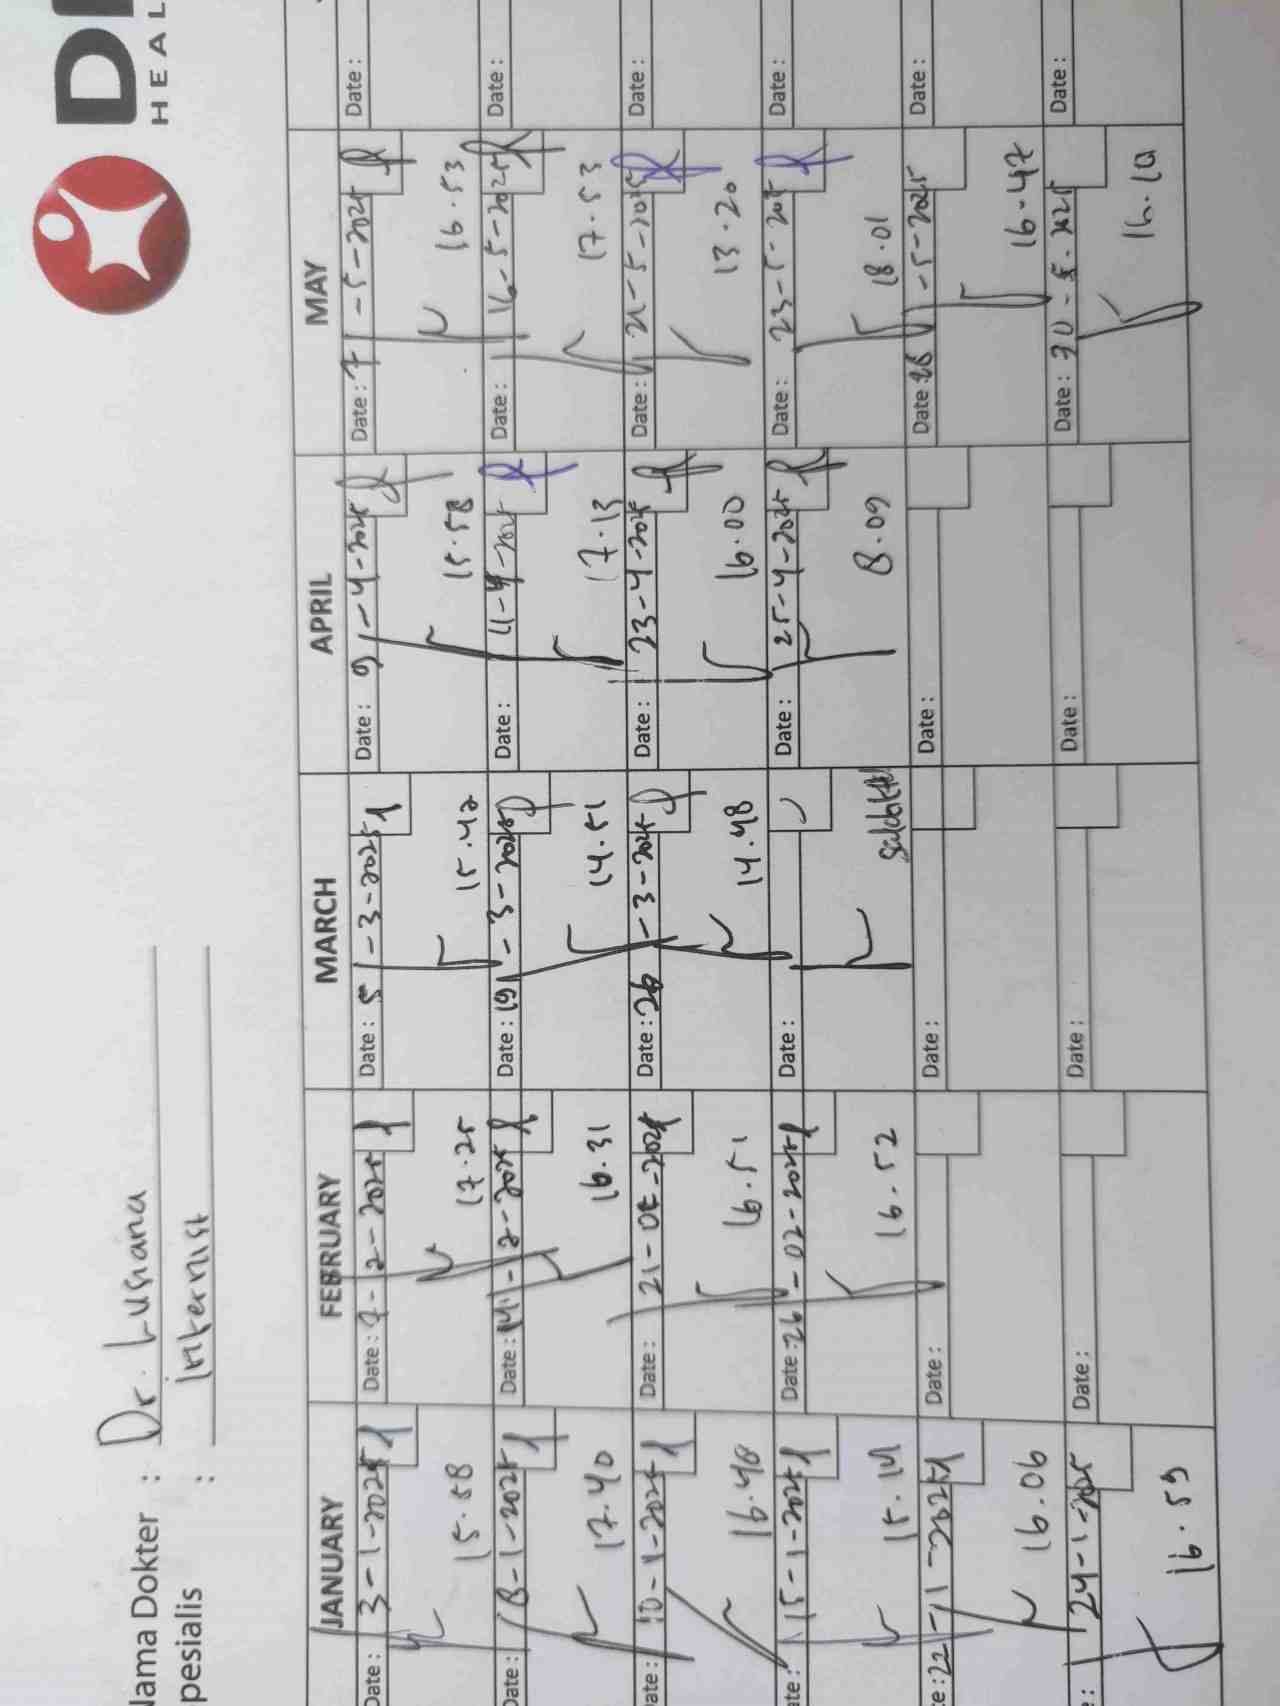 HEAL
Nama Dokter : Dr. Lusiana
pesialis : Internist
JANUARY FEBRUARY MARCH APRIL MAY
Date: 3-1-2025 Date: 7-2-2025 Date: 5-3-2025 Date: 9-4-2025 Date: 7-5-2025 Date:
15.58 17.25 15.42 15.58 16.53
Date: 8-1-2025 Date: 14-2-2025 Date: 19-3-2025 Date: 11-4-2025 Date: 16-5-2025 Date:
17.40 16.31 14.51 17.13 17.53
Date: 10-1-2025 Date: 21-02-2025 Date: 26-3-2025 Date: 23-4-2025 Date: 21-5-2025 Date:
16.40 16.51 14.48 16.00 13.20
ate: 15-1-2025 Date: 26-02-2025 Date: Date: 25-4-2025 Date: 23-5-2025 Date:
15.14 16.52 8.09 18.01
te: 22-1-2025 Date: Date: Date: Date: 28-5-2025 Date:
16.06 16.47
: 24-1-2025 Date: Date: Date: Date: 30-5-2025 Date:
16.59 16.10